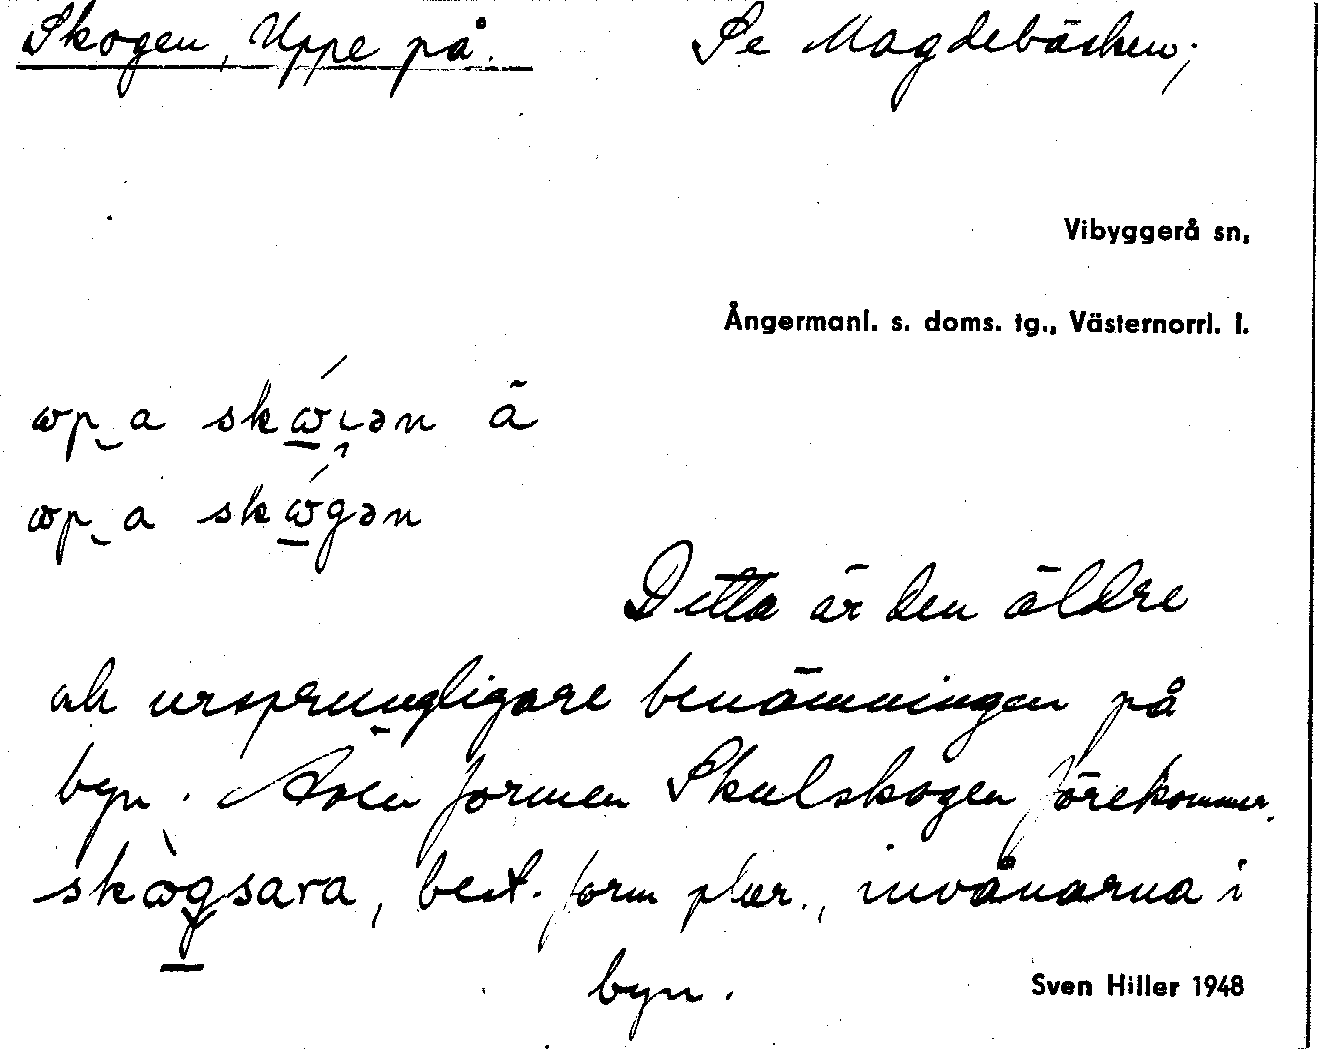 Skogen, Uppe på. Se Magdebäcken;
Vibyggerå sn,
Ångermanl. s. doms. tg., Västernorrl. l.
ɷp a skɷ́ıən å
ɷp a skɷ́gən
Detta är den äldre
och ursprungligare benämningen på
byn. Även formen Skulskogen förekommer.
skɷ̀gsara, best. form plur., invånarna i
byn.
Sven Hiller 1948